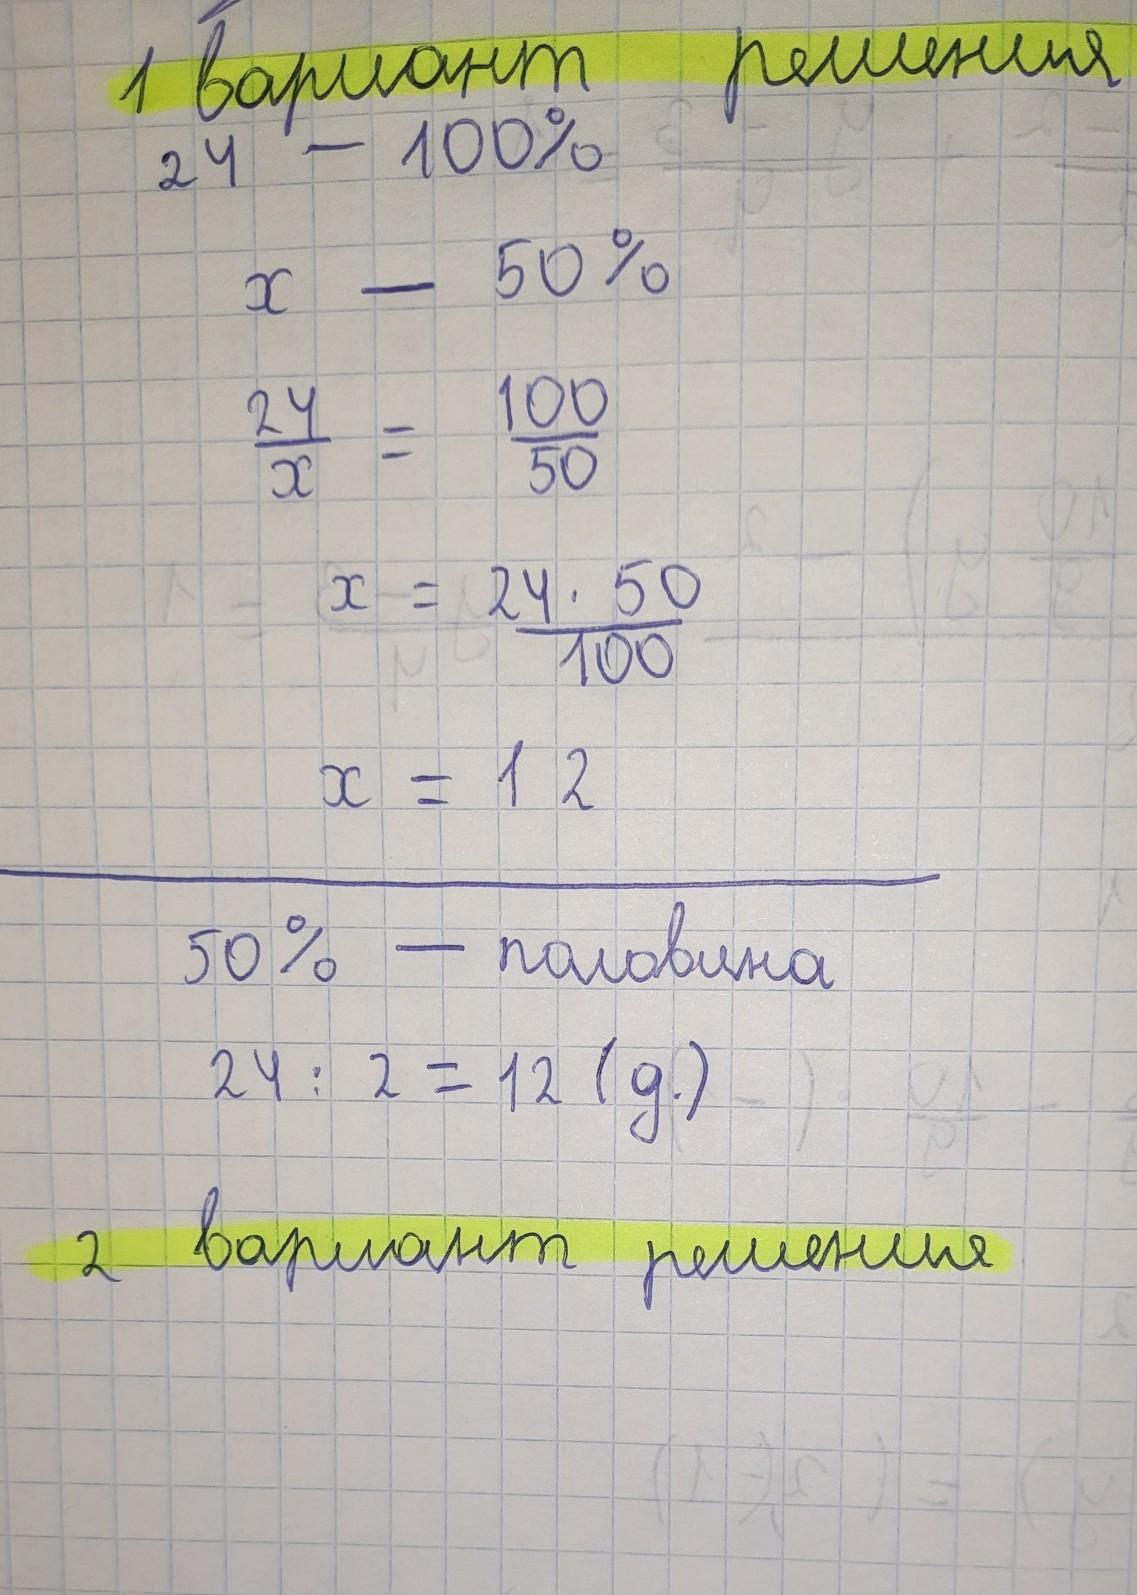 1 вариант решения
24 — 100%
x — 50%
24/x = 100/50
x = 24 · 50/100
x = 12
50% — половина
24 : 2 = 12 (д.)
2 вариант решения